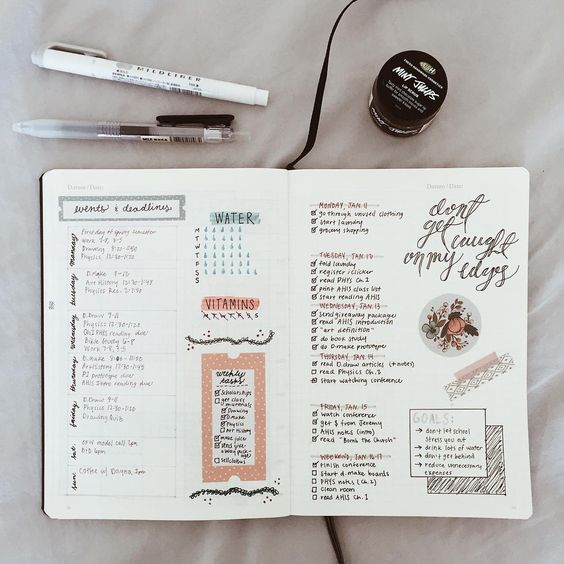 MILDLINER
MINT JULIPS
LIP SCRUB
Datum / Date:
events & deadlines
monday
First day of spring semester
Work 7-8, 3-5
Drawing 8:30-11:20
Physics 12:30-1:20
tuesday
D. Make 8-11
Art History 12:30-1:45
Physics Rec. 2-2:50
wednesday
D. Draw 9-11
Physics 12:30-1:20
Bible Study 6-8
Work 7-8, 3-5
thursday
D. make
Art History 12:30-1:45
P1 prototype due
AHIS Intro reading due
friday
D. Draw 9-11
Physics 12:30-1:20
Drawing Quiz
sat
model call 1pm
sun
Coffee w/ Dayna, 2pm
WATER
M
T
W
T
F
S
S
VITAMINS
M T W T F S S
weekly tasks
scholarships
get class materials
Drawing
D. Make
Physics
Art History
make juice
sell clothes
Datum / Date:
MONDAY, JAN. 11
go through unused clothing
start laundry
grocery shopping
TUESDAY, JAN. 12
fold laundry
register iclicker
read PHYS Ch. 1
print AHIS class list
start reading AHIS
WEDNESDAY, JAN. 13
send giveaway package
read AHIS introduction
"art definition"
do book study
do D. make prototype
THURSDAY, JAN. 14
read D. Draw articles (+ notes)
read Physics Ch. 3
start watching conference
FRIDAY, JAN. 15
watch conference
get $ from Jeremy
AHIS notes (intro)
read "Bomb the Church"
WEEKEND, JAN. 16-17
finish conference
start d. make boards
PHYS notes (Ch. 2)
clean room
read AHIS Ch. 1
don't
get caught
on my
edges
GOALS:
→ don't let school
stress you out
→ drink lots of water
→ don't get behind
→ reduce unnecessary
expenses